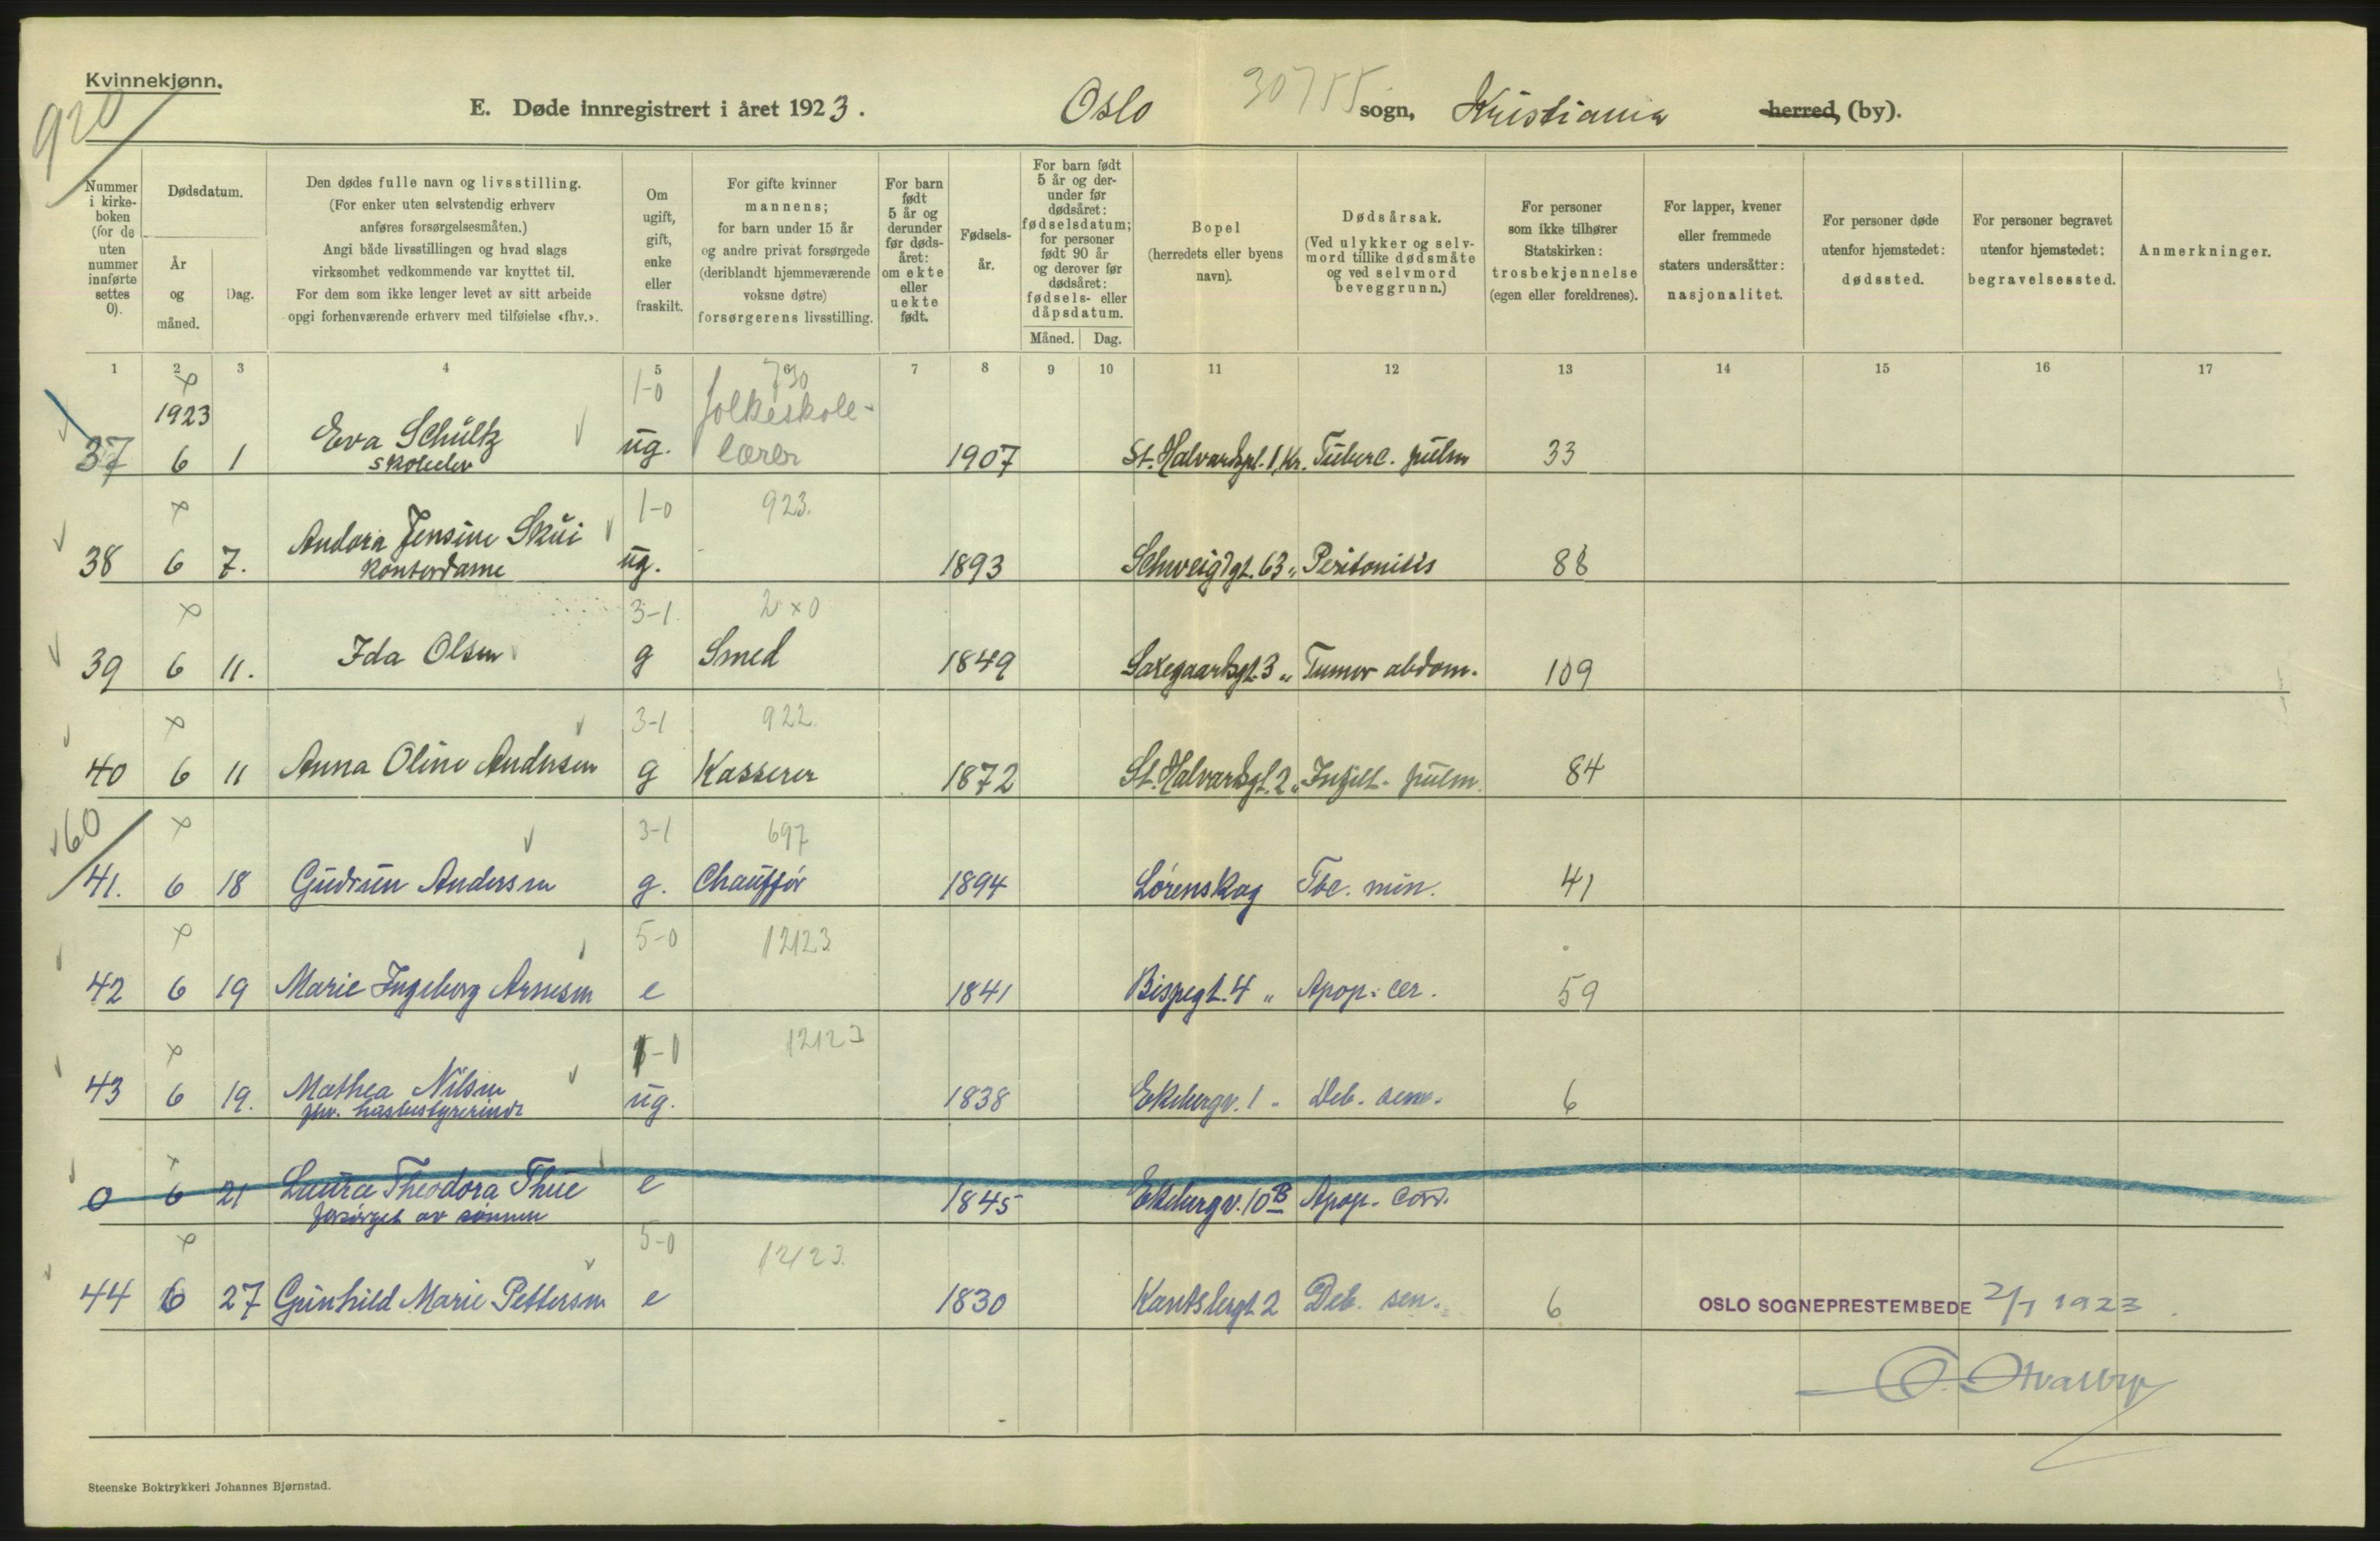 Kvinnekjønn.
920
E. Døde innregistrert i året 1923.
Oslo
30755
sogn, Kristiania herred, (by).
Nummer i kirke- boken (for de uten nummer innførte settes 0).
Dødsdatum.
År og måned.
Dag.
Den dødes fulle navn og livsstilling.
(For enker uten selvstendig erhverv
anføres forsørgelsesmåten.)
Angi både livsstillingen og hvad slags
virksomhet vedkommende var knyttet til.
For dem som ikke lenger levet av sitt arbeide
opgi forhenværende erhverv med tilføielse «fhv.».
Om ugift, gift, enke eller fraskilt.
For gifte kvinner
mannens;
for barn under 15 år
og andre privat forsørgede
(deriblandt hjemmeværende
voksne døtre)
forsørgerens livsstilling.
For barn født 5 år og derunder før døds- året: om ekte eller uekte født.
Fødsels- år.
For barn født 5 år og der- under før dødsåret: fødselsdatum; for personer født 90 år og derover før dødsåret: fødsels- eller dåpsdatum.
Måned. Dag.
Bopel
(herredets eller byens
navn).
Dødsårsak.
(Ved ulykker og selv-
mord tillike dødsmåte
og ved selvmord
beveggrunn.)
For personer
som ikke tilhører
Statskirken:
trosbekjennelse
(egen eller foreldrenes).
For lapper, kvener
eller fremmede
staters undersåtter:
nasjonalitet.
For personer døde
utenfor hjemstedet:
dødssted.
For personer begravet
utenfor hjemstedet:
begravelsessted.
Anmerkninger.
1 2 3 4 5 6 7 8 9 10 11 12 13 14 15 16 17
1923 1-0 730 folkeskole-
37 6 1 Eva Schultz ug. lærer 1907 St. Halvardspl. 1, Kr. Tuberc. pulm 33
skoleelev
1-0 923.
38 6 7. Andora Jensine Skui ug. 1893 Schweigdgt. 63 " Peritonitis 88
Kontordame
3-1 2x0
39 6 11. Ida Olsen g Smed 1849 Saxegaardsgt. 3 " Tumor abdom. 109
3-1 922.
40 6 11 Anna Oline Andersen g Kasserer 1872 St. Halvardsgt. 2 " Infilt. pulm. 84
160 3-1 697
41. 6 18 Gudrun Andersen g. Chauffør 1894 Lørenskog Tbc. min. 41
5-0 12123
42 6 19 Marie Ingeborg Arnesen e 1841 Bispegt. 4 " Apop. cer. 59
1-0 12123
43 6 19. Mathea Nilsen ug. 1838 Ekebergv. 1 " Deb. sen. 6
fhv. husbestyrerinde
0 6 21 Laura Theodora Thue e 1845 Ekebergv. 10 B Apop. cor.
forsørget av sønnen
5-0 12123.
44 6 27 Gunhild Marie Pettersen e 1830 Kantslergt 2 Deb. sen. 6
OSLO SOGNEPRESTEMBEDE 2/7 1923
Steenske Boktrykkeri Johannes Bjørnstad.